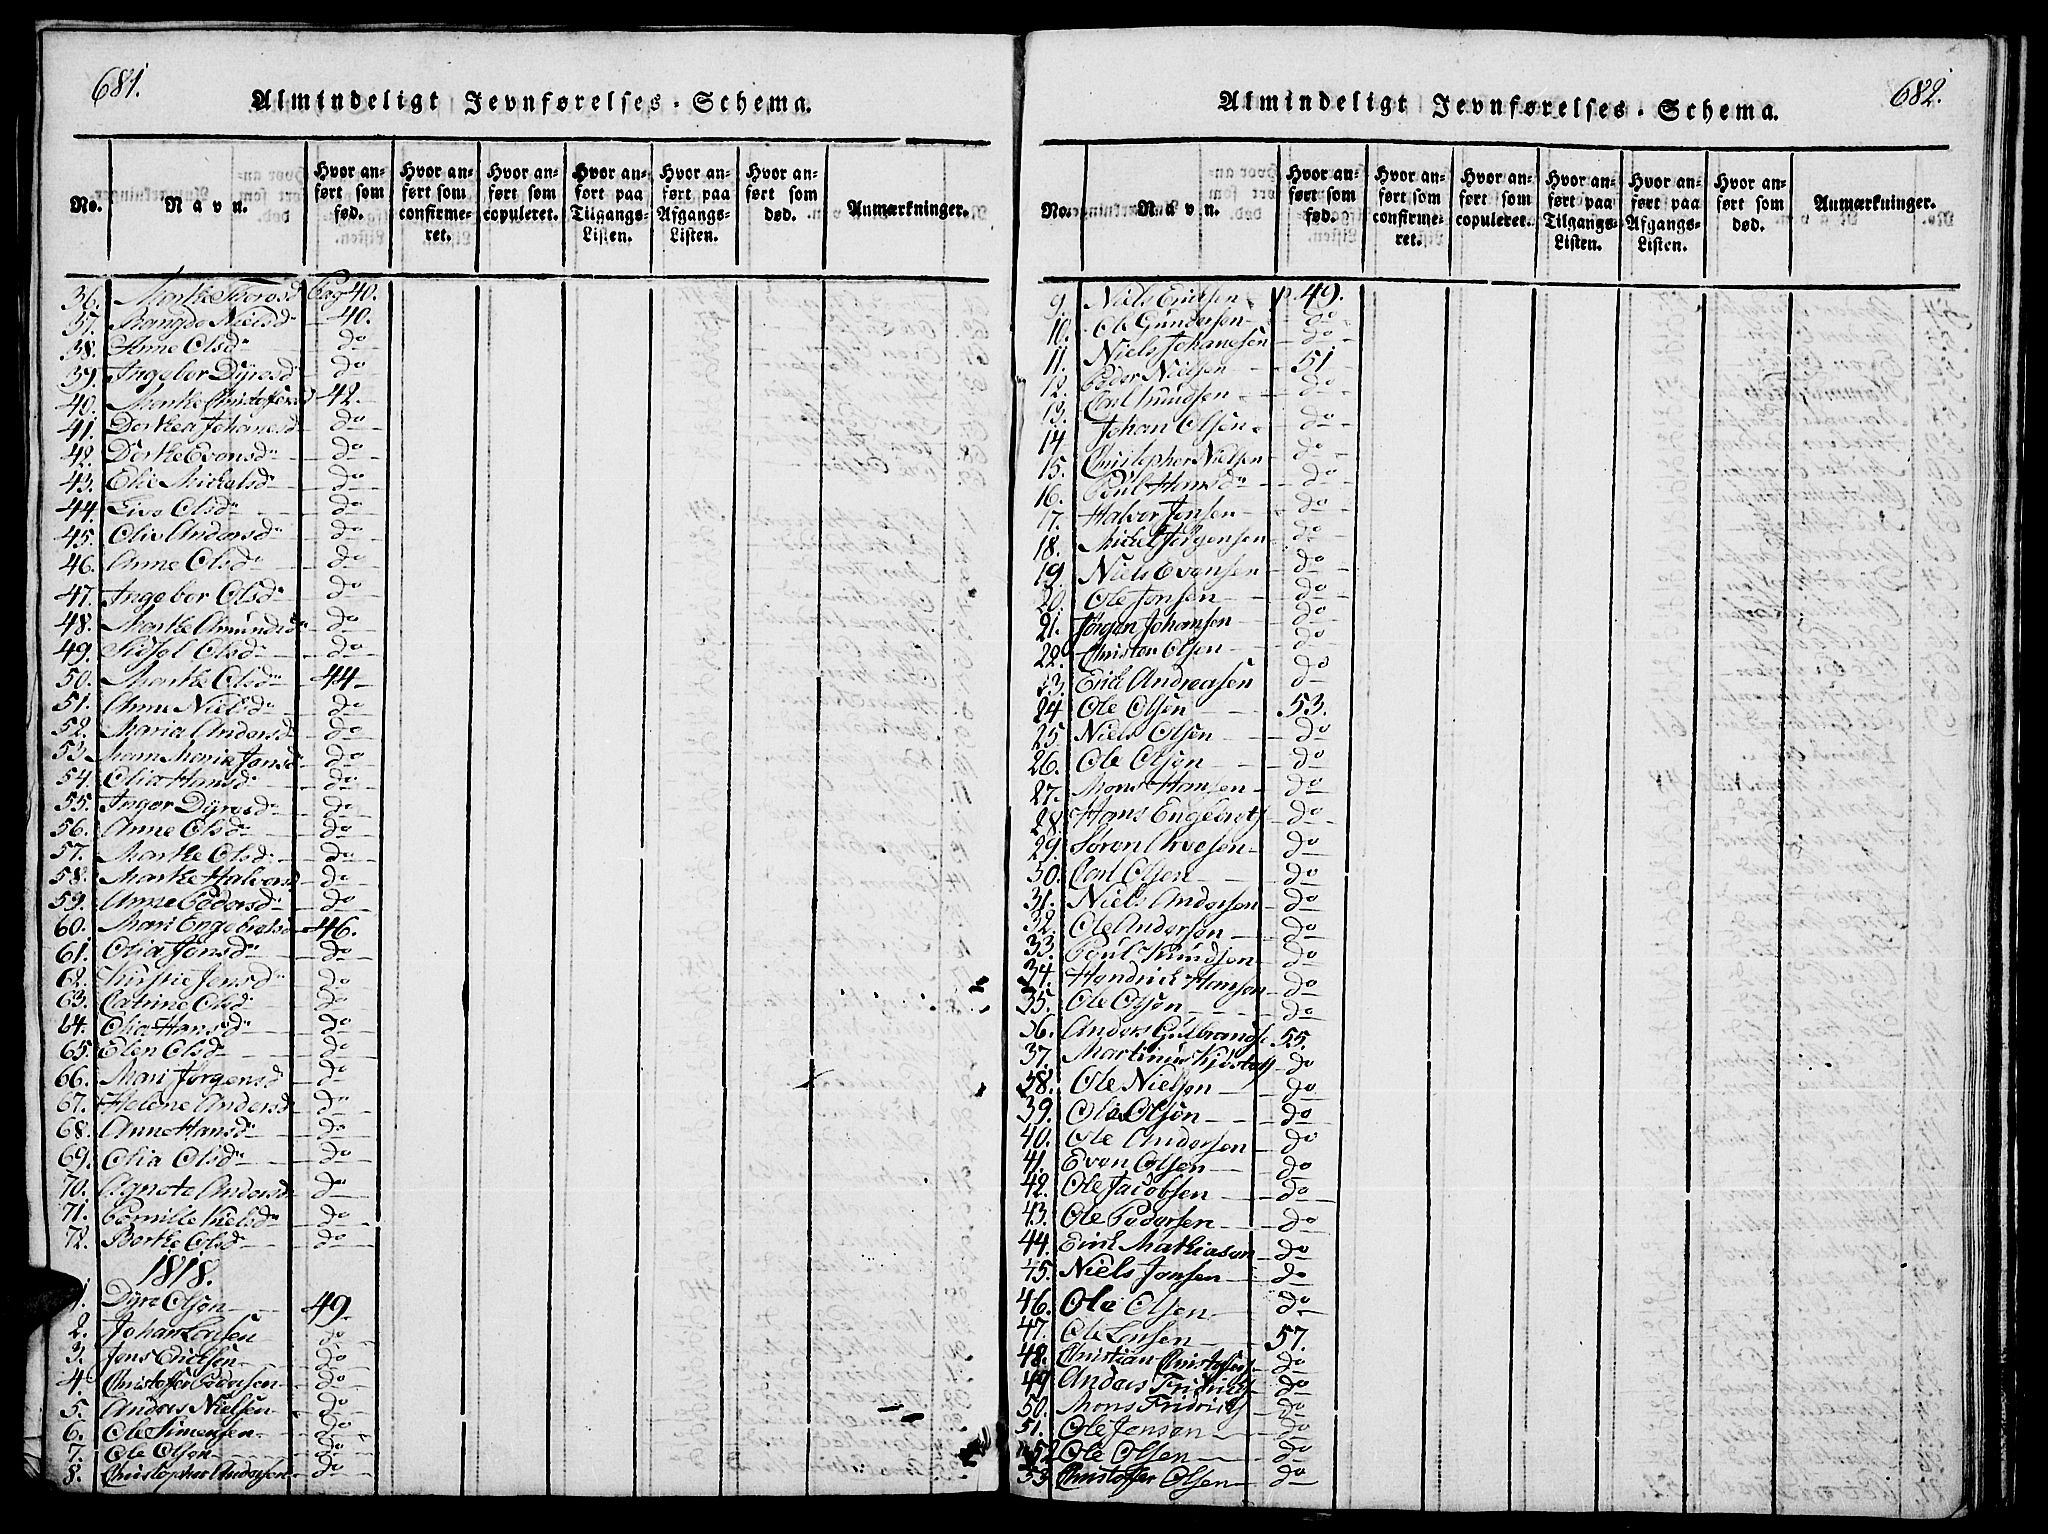 681.
Almindeligt Jevnførelses-Schema.
No. Navn. Hvor anført som fød. Hvor anført som confirmeret. Hvor anført som copuleret. Hvor anført paa Tilgangs-Listen. Hvor anført paa Afgangs-Listen. Hvor anført som død. Anmærkninger.
36. Marthe Thorsd Pag 40.
37. Nielsd 40.
38. Anne Olsd do
39. Ingebor Dyresd do
40. Marthe Christofersd 42.
41. Dorthea Johanesd do
42. Dorthe Evensd do
43. Elie Mickelsd do
44. Lisa Olsd do
45. Olia Andersd do
46. Anne Olsd do
47. Ingebor Olsd do
48. Marthe Amundsd do
49. Sidsel Olsd do
50. Marthe Olsd 44
51. Anne Nielsd do
52. Maria Andersd do
53. Maria Jansd do
54. Olia Hansd do
55. Inger Dyresd do
56. Anne Olsd do
57. Marthe Olsd do
58. Marthe Halvorsd do
59. Anne Pedersd do
60. Mari Engebretsd 46.
61. Olia Jonsd do
62. Kirstie Jensd do
63. Catrine Olsd do
64. Olia Hansd do
65. Elen Olsd do
66. Mari Jørgensd do
67. Helene Andersd do
68. Anne Hansd do
69. Olia Olsd do
70. Agnete Andersd do
71. Pernille Nielsd do
72. Berthe Olsd do
1818.
1. Dyre Olsen 49.
2. Johan Larsen do
3. Jens Ericksen do
4. Christoffer Pedersen do
5. Anders Nielsen do
6. Ole Simensen do
7. Ole Olsen do
8. Christopher Andersen do
682.
Almindeligt Jevnførelses-Schema.
No. Navn. Hvor anført som fød. Hvor anført som confirmeret. Hvor anført som copuleret. Hvor anført paa Tilgangs-Listen. Hvor anført paa Afgangs-Listen. Hvor anført som død. Anmærkninger.
9. Niels Ericksen p. 49.
10. Ole Gundersen do
11. Niels Johanesen do
12. Peder Nielsen 51
13. Carl Knudsen do
14. Johan Olsen do
15. Christopher Nielsen do
16. Poul Hans do
17. Halvor Jensen do
18. Mickel Jørgensen do
19. Niels Evensen do
20. Ole Jonsen do
21. Jørgen Johansen do
22. Christen Olsen do
23. Erick Andreasen do
24. Ole Olsen 53.
25. Niels Olsen do
26. Ole Olsen do
27. Mons Hansen do
28. Hans Engebrets do
29. Søren Arvesen do
30. Carl Olsen do
31. Niels Andersen do
32. Ole Andersen do
33. Poul Knudsen do
34. Hendrick Hansen do
35. Ole Olsen do
36. Anders Gulbrands 55.
37. Martinus do
38. Ole Nielsen do
39. Ole Olsen do
40. Ole Andersen do
41. Even Olsen do
42. Ole Jacobsen do
43. Ole Pedersen do
44. Erick Mathiasen do
45. Niels Jansen do
46. Ole Olsen do
47. Ole Larsen 57.
48. Christian Christofers do
49. Anders Fridricks do
50. Mons Fridricks do
51. Ole Jensen do
52 Ole Olsen do
53 Christoffer Olsen do